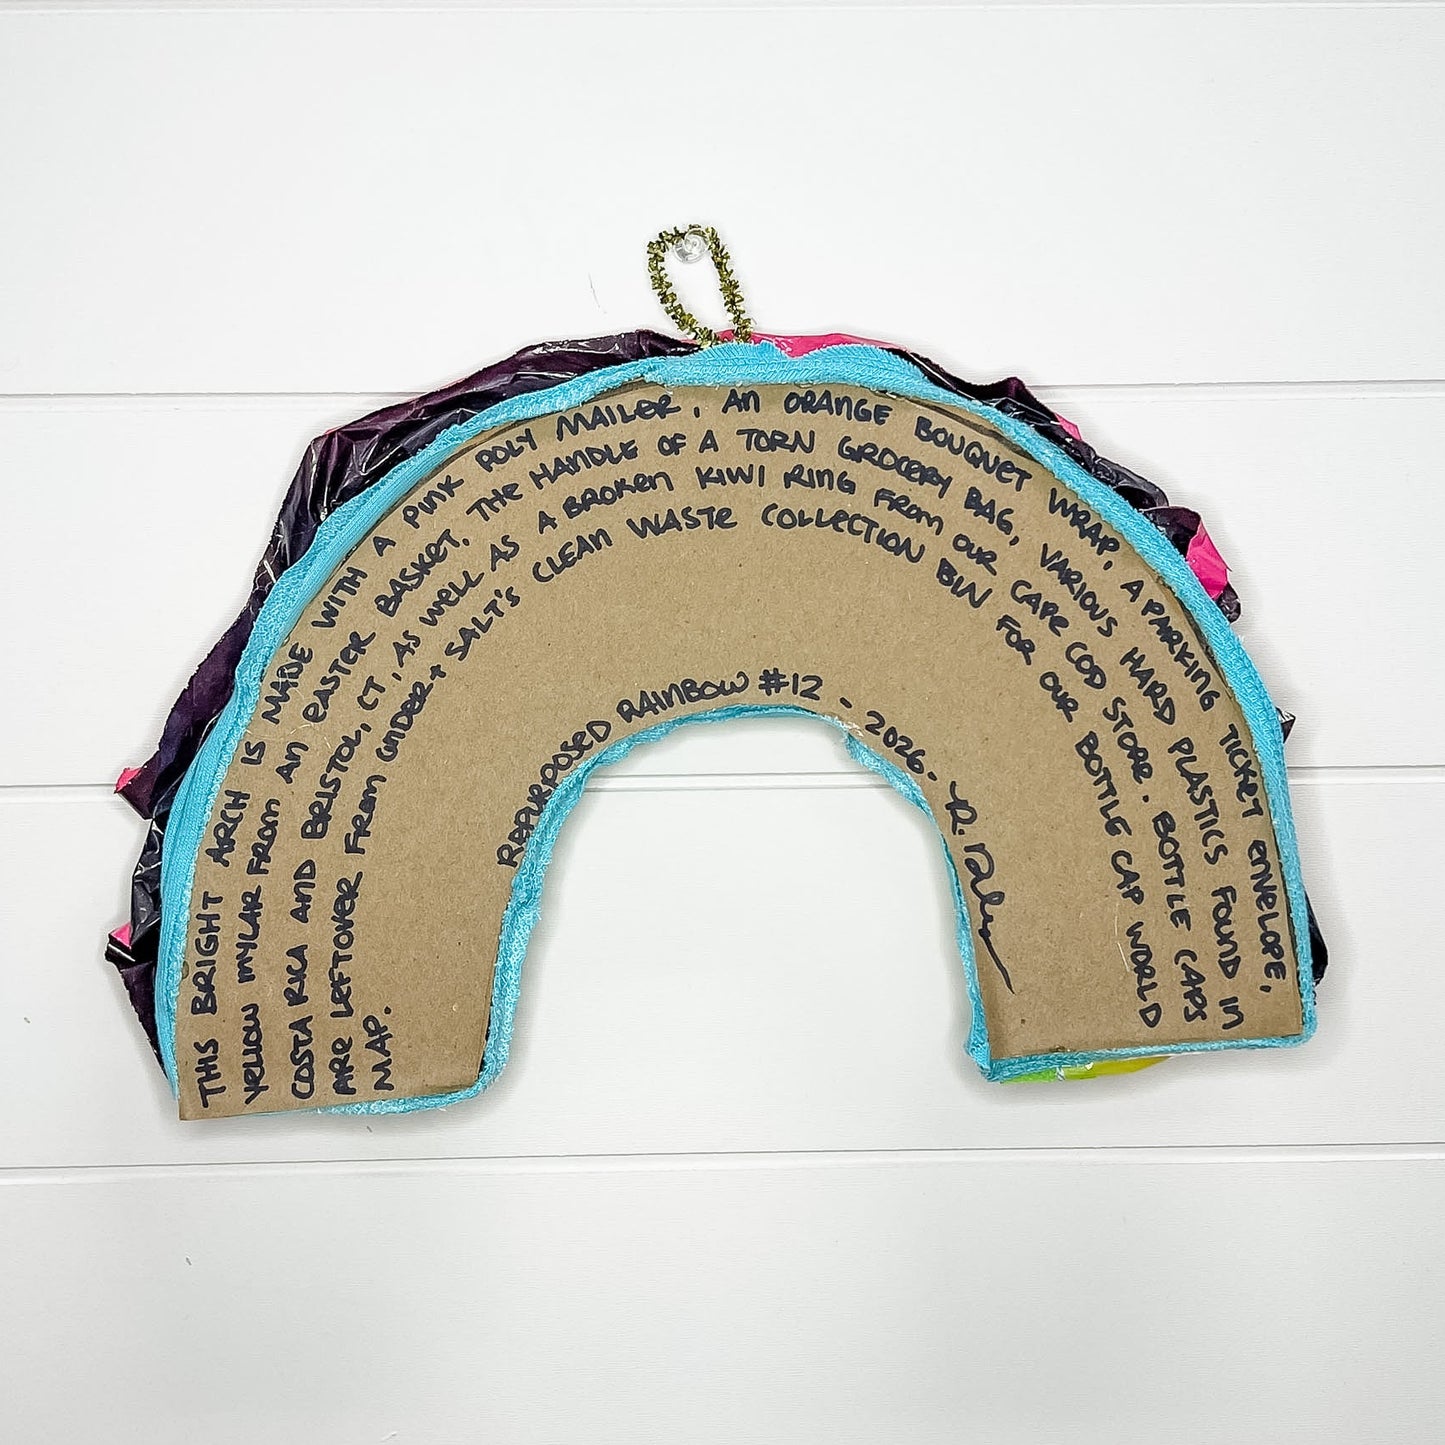 THIS BRIGHT ARCH IS MADE WITH A PINK POLY MAILER, AN ORANGE BOUQUET WRAP, A PARKING TICKET ENVELOPE,
YELLOW MYLAR FROM AN EASTER BASKET, THE HANDLE OF A TORN GROCERY BAG, VARIOUS HARD PLASTICS FOUND IN
COSTA RICA AND BRISTOL, CT, AS WELL AS A BROKEN KIWI RING FROM OUR CAPE COD STORE. BOTTLE CAPS
ARE LEFTOVER FROM + SALT'S CLEAN WASTE COLLECTION BIN FOR OUR BOTTLE CAP WORLD
MAP.
REPURPOSED RAINBOW #12 - 2026 - R.